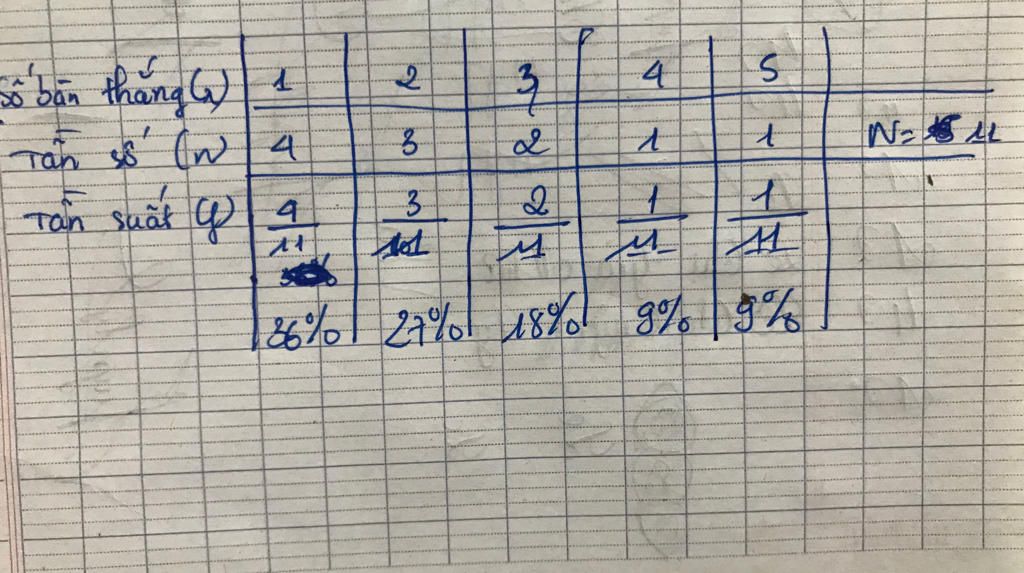 số bàn thắng (x) 1 2 3 4 5
Tần số (n) 4 3 2 1 1 N = 11
Tần suất (f) 4/11 3/11 2/11 1/11 1/11
36% 27% 18% 9% 9%